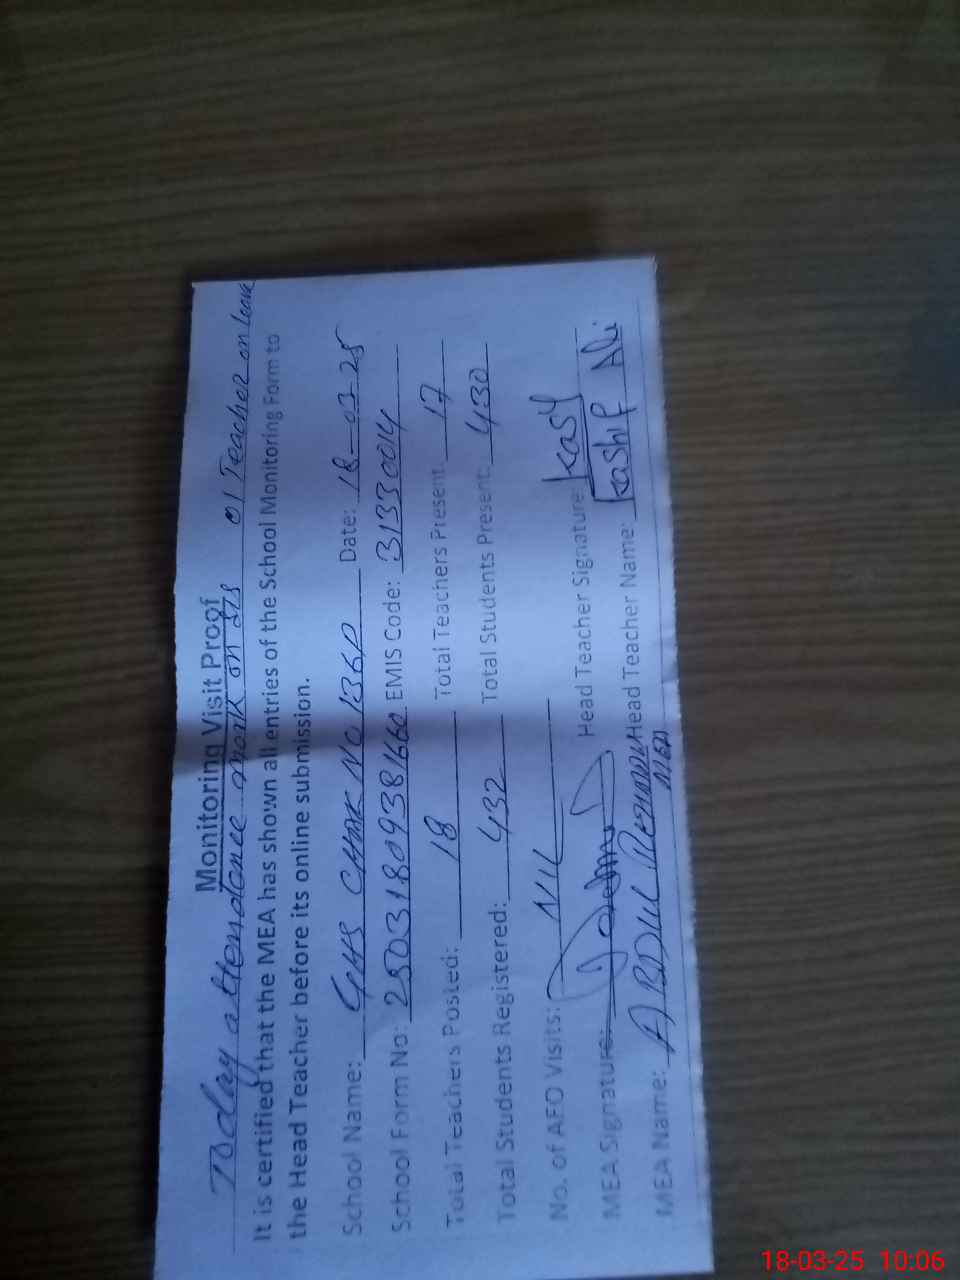 Monitoring Visit Proof
Today attendance mark on SIS 01 Teacher on leave
It is certified that the MEA has shown all entries of the School Monitoring Form to
the Head Teacher before its online submission.
School Name: GHS CHAK NO 136P Date: 18-03-25
School Form No: 25031809381660 EMIS Code: 31330014
Total Teachers Posted: 18 Total Teachers Present: 17
Total Students Registered: 432 Total Students Present: 430
No. of AEO Visits: NIL
MEA Signature: Head Teacher Signature: Kasf
MEA Name: ABDUL REHMAN Head Teacher Name: Kashif Ali
MEA
18-03-25 10:06